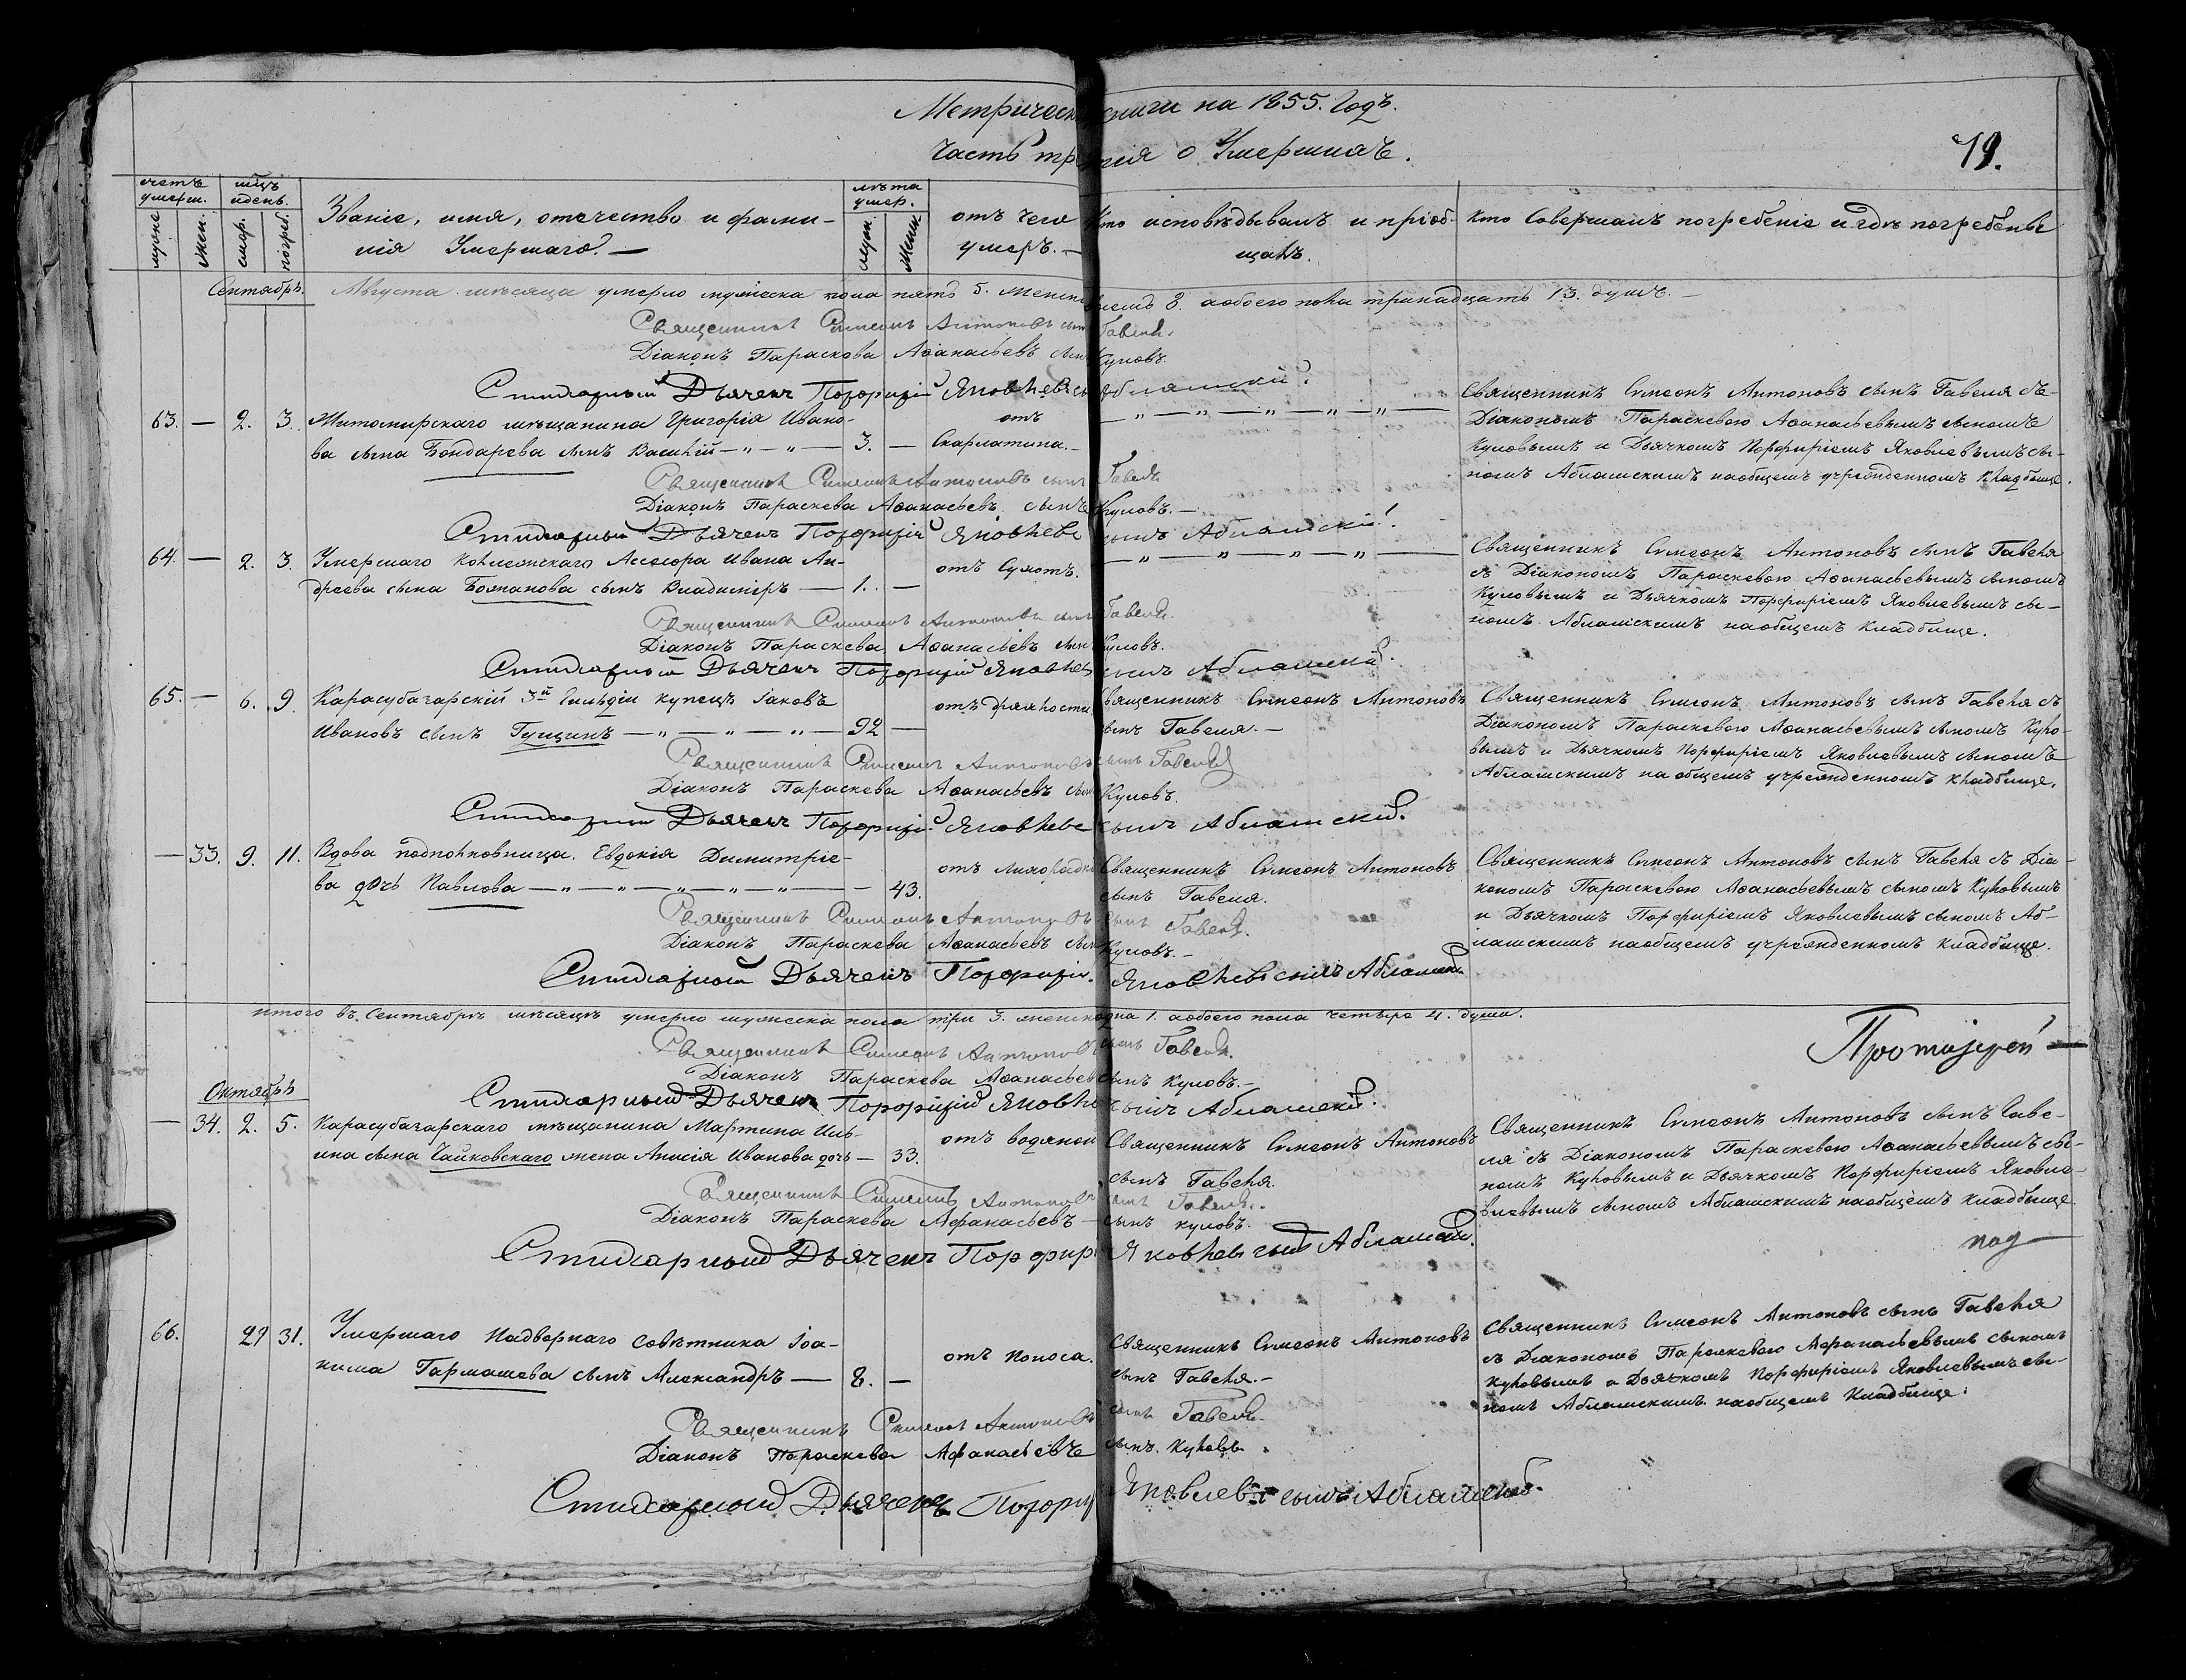 Метрической книги на 1855. Годъ.
Часть третія о Умершихъ.
79.
счетъ умерш.
мцъ идень.
Званіе, имя, отечество и фами-
лія Умершаго. —
лѣта умер.
отъ чего
умеръ. —
Кто исповѣдывалъ и пріоб-
щалъ.
Кто Совершалъ погребеніе и гдѣ погребены
муже
жен.
смер.
погреб.
муж.
женк.
Сентябрь.
Августа мѣсяца умерло мужеска пола пять 5. женска восемь 8. а обоего пола тринадцать 13. душъ. —
Священникъ Симеонъ Антоновъ сынъ Гавеля.
Діаконъ Параскева Аѳанасьевъ сынъ Куловъ.
Стихарный Дьячекъ Порфирій Яковлевъ сынъ Аблямскій.
63. — 2. 3. Житомирскаго мѣщанина Григорія Ивано-
ва сына Бондарева сынъ Василій — „ — „ — 3. —
отъ
Скарлатина. —
— „ — „ — „ — „ — „ —
Священникъ Симеонъ Антоновъ сынъ Гавеля съ
Діакономъ Параскевою Аѳанасьевымъ сыномъ
Куловымъ и Дьячкомъ Порфиріемъ Яковлевымъ сы-
номъ Аблямскимъ наобщемъ учрежденномъ Кладбище.
Священникъ Симеонъ Антоновъ сынъ Гавеля
Діаконъ Параскева Аѳанасьевъ сынъ Куловъ. —
Стихарный Дьячекъ Порфирій Яковлевъ сынъ Аблямскій.
64. — 2. 3. Умершаго Коллежскаго Ассесора Ивана Ан-
дреева сына Божанова сынъ Владиміръ — 1. —
отъ Сухотъ.
— „ — „ — „ — „ —
Священникъ Симеонъ Антоновъ сынъ Гавеля
съ Діакономъ Параскевою Аѳанасьевымъ сыномъ
Куловымъ и Дьячкомъ Порфиріемъ Яковлевымъ сы-
номъ Аблямскимъ наобщемъ кладбище.
Священникъ Симеонъ Антоновъ сынъ Гавеля.
Діаконъ Параскева Аѳанасьевъ сынъ Куловъ.
Стихарный Дьячекъ Порфирій Яковлевъ сынъ Аблямскій.
65. — 6. 9. Карасубазарскій 3й Гильдіи купецъ Іаковъ
Ивановъ сынъ Гущинъ — „ — „ — „ — 92 —
отъ дряхлости
Священникъ Симеонъ Антоновъ
сынъ Гавеля. —
Священникъ Симеонъ Антоновъ сынъ Гавеля съ
Діакономъ Параскевою Аѳанасьевымъ сыномъ Куло-
вымъ и Дьячкомъ Порфиріемъ Яковлевымъ сыномъ
Аблямскимъ на общемъ учрежденномъ кладбище.
Священникъ Симеонъ Антоновъ сынъ Гавеля
Діаконъ Параскева Аѳанасьевъ сынъ Куловъ.
Стихарный Дьячекъ Порфирій Яковлевъ сынъ Аблямскій.
— 33. 9. 11. Вдова подполковница. Евдокія Димитріе-
ва дочь Павлова — „ — „ — „ — „ — „ — 43.
отъ лихорадки
Священникъ Симеонъ Антоновъ
сынъ Гавеля.
Священникъ Симеонъ Антоновъ сынъ Гавеля съ Діа-
кономъ Параскевою Аѳанасьевымъ сыномъ Куловымъ
и Дьячкомъ Порфиріемъ Яковлевымъ сыномъ Аб-
лямскимъ наобщемъ учрежденномъ кладбище.
Священникъ Симеонъ Антоновъ сынъ Гавеля.
Діаконъ Параскева Аѳанасьевъ сынъ Куловъ. —
Стихарный Дьячекъ Порфирій Яковлевъ сынъ Аблямскій
итого въ Сентябрѣ мѣсяцѣ умерло мужеска пола три 3. женска одна 1. а обоего пола четыре 4. души.
Священникъ Симеонъ Антоновъ сынъ Гавеля.
Протоіерей —
Діаконъ Параскева Аѳанасьевъ сынъ Куловъ. —
Октябрь
Стихарный Дьячекъ Порфирій Яковлевъ сынъ Аблямскій.
— 34. 2. 5. Карасубазарскаго мѣщанина Мартина Иль-
ина сына Чайковскаго жена Анисія Иванова дочь — 33.
отъ водяной
Священникъ Симеонъ Антоновъ
сынъ Гавеля.
Священникъ Симеонъ Антоновъ сынъ Гаве-
ля съ Діакономъ Параскевою Аѳанасьевымъ сы-
номъ Куловымъ и Дьячкомъ Порфиріемъ Яковле-
влевымъ сыномъ Аблямскимъ наобщемъ кладбище
Священникъ Симеонъ Антоновъ сынъ Гавеля.
Діаконъ Параскева Афанасьевъ — сынъ куловъ.
под
Стихарный Дьячекъ Порфирій Яковлевъ сынъ Аблямскій.
66. 29 31. Умершаго Надворнаго Совѣтника Іоа-
кима Гармашева сынъ Александръ — 8. —
отъ поноса.
Священникъ Симеонъ Антоновъ
сынъ Гавеля. —
Священникъ Симеонъ Антоновъ сынъ Гавеля
съ Діакономъ Параскевою Афанасьевымъ сыномъ
Куловымъ и Дьячкомъ Порфиріемъ Яковлевымъ сы-
номъ Аблямскимъ наобщемъ Кладбище.
Священникъ Симеонъ Антоновъ сынъ Гавеля.
Діаконъ Параскева Афанасьевъ сынъ Куловъ.
Стихарный Дьячекъ Порфирій Яковлевъ сынъ Аблямскій.